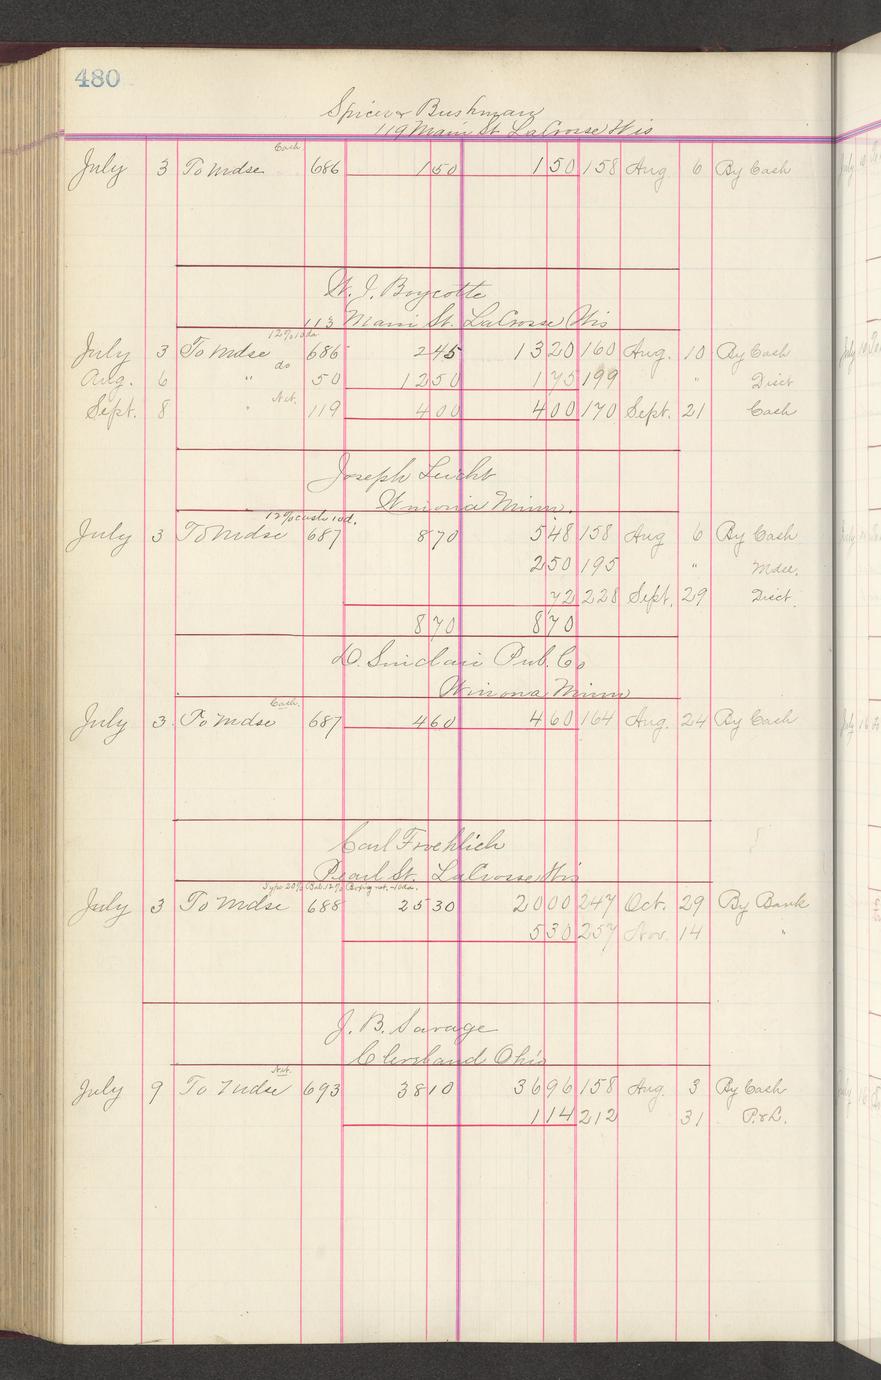 480
Spicer & Bushman
119 Main St. LaCrosse Wis
Cash
July 3 To Mdse 686 150 150 158 Aug 6 By Cash
W. J. Boycotte
113 Main St. LaCrosse Wis
12% 10 da
July 3 To Mdse 686 245 1320 160 Aug. 10 By Cash
do
Aug. 6 " 50 1250 175 199 " Disct
Net.
Sept. 8 " 119 400 400 170 Sept. 21 Cash
Joseph Leicht
Winona Minn.
12% cash 10 d.
July 3 To Mdse 687 870 548 158 Aug 6 By Cash
250 195 " Mdse.
72 228 Sept. 29 Disct.
870 870
D. Sinclair Pub. Co
Winona Minn
Cash.
July 3. To Mdse 687 460 460 164 Aug. 24 By Cash
Carl Froehlich
Pearl St. LaCrosse Wis
Type 20% Bal. 12% Boxing net. - 10 da.
July 3 To Mdse 688 2530 2000 247 Oct. 29 By Bank
530 257 Nov. 14 "
J. B. Savage
Cleveland Ohio
Net.
July 9 To Mdse 693 3810 3696 158 Aug. 3 By Cash
114 212 31 P. & L.